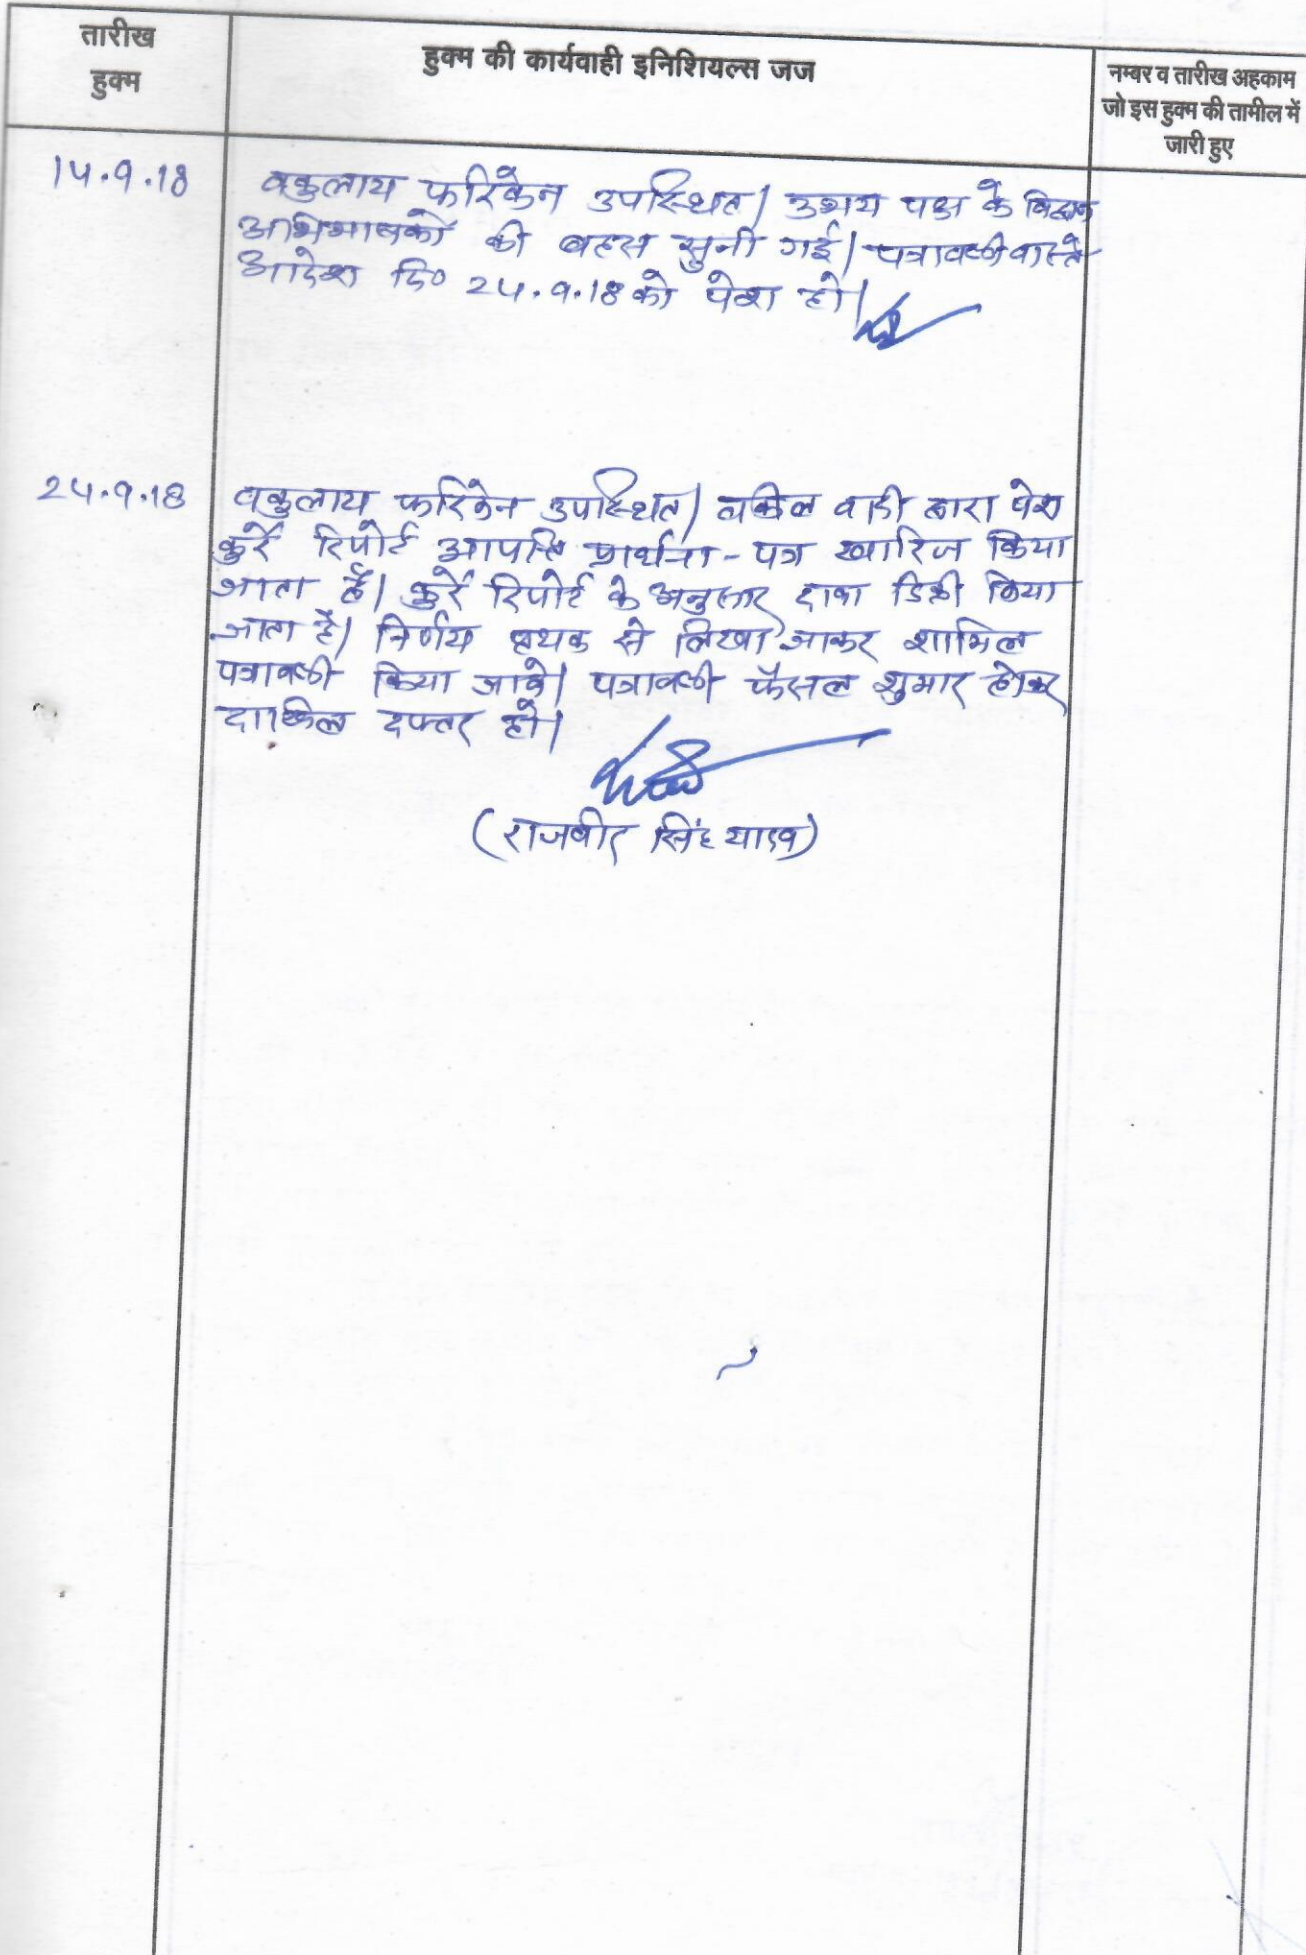 तारीख
हुक्म
हुक्म की कार्यवाही इनिशियल्स जज
नम्बर व तारीख अहकाम
जो इस हुक्म की तामील में
जारी हुए
14.9.18
वकुलाय फरिकेन उपस्थित। उभय पक्ष के विद्वान
अभिभाषकों की बहस सुनी गई। पत्रावली वास्ते
आदेश दि० 24.9.18 को पेश हो।
24.9.18
वकुलाय फरिकेन उपस्थित। वकिल वादी द्वारा पेश
कुर्रे रिपोर्ट आपत्ति प्रार्थना-पत्र खारिज किया
जाता है। कुर्रे रिपोर्ट के अनुसार दावा डिक्री किया
जाता है। निर्णय पृथक से लिखा जाकर शामिल
पत्रावली किया जावे। पत्रावली फैसल शुमार होकर
दाखिल दफ्तर हो।
(राजवीर सिंह यादव)